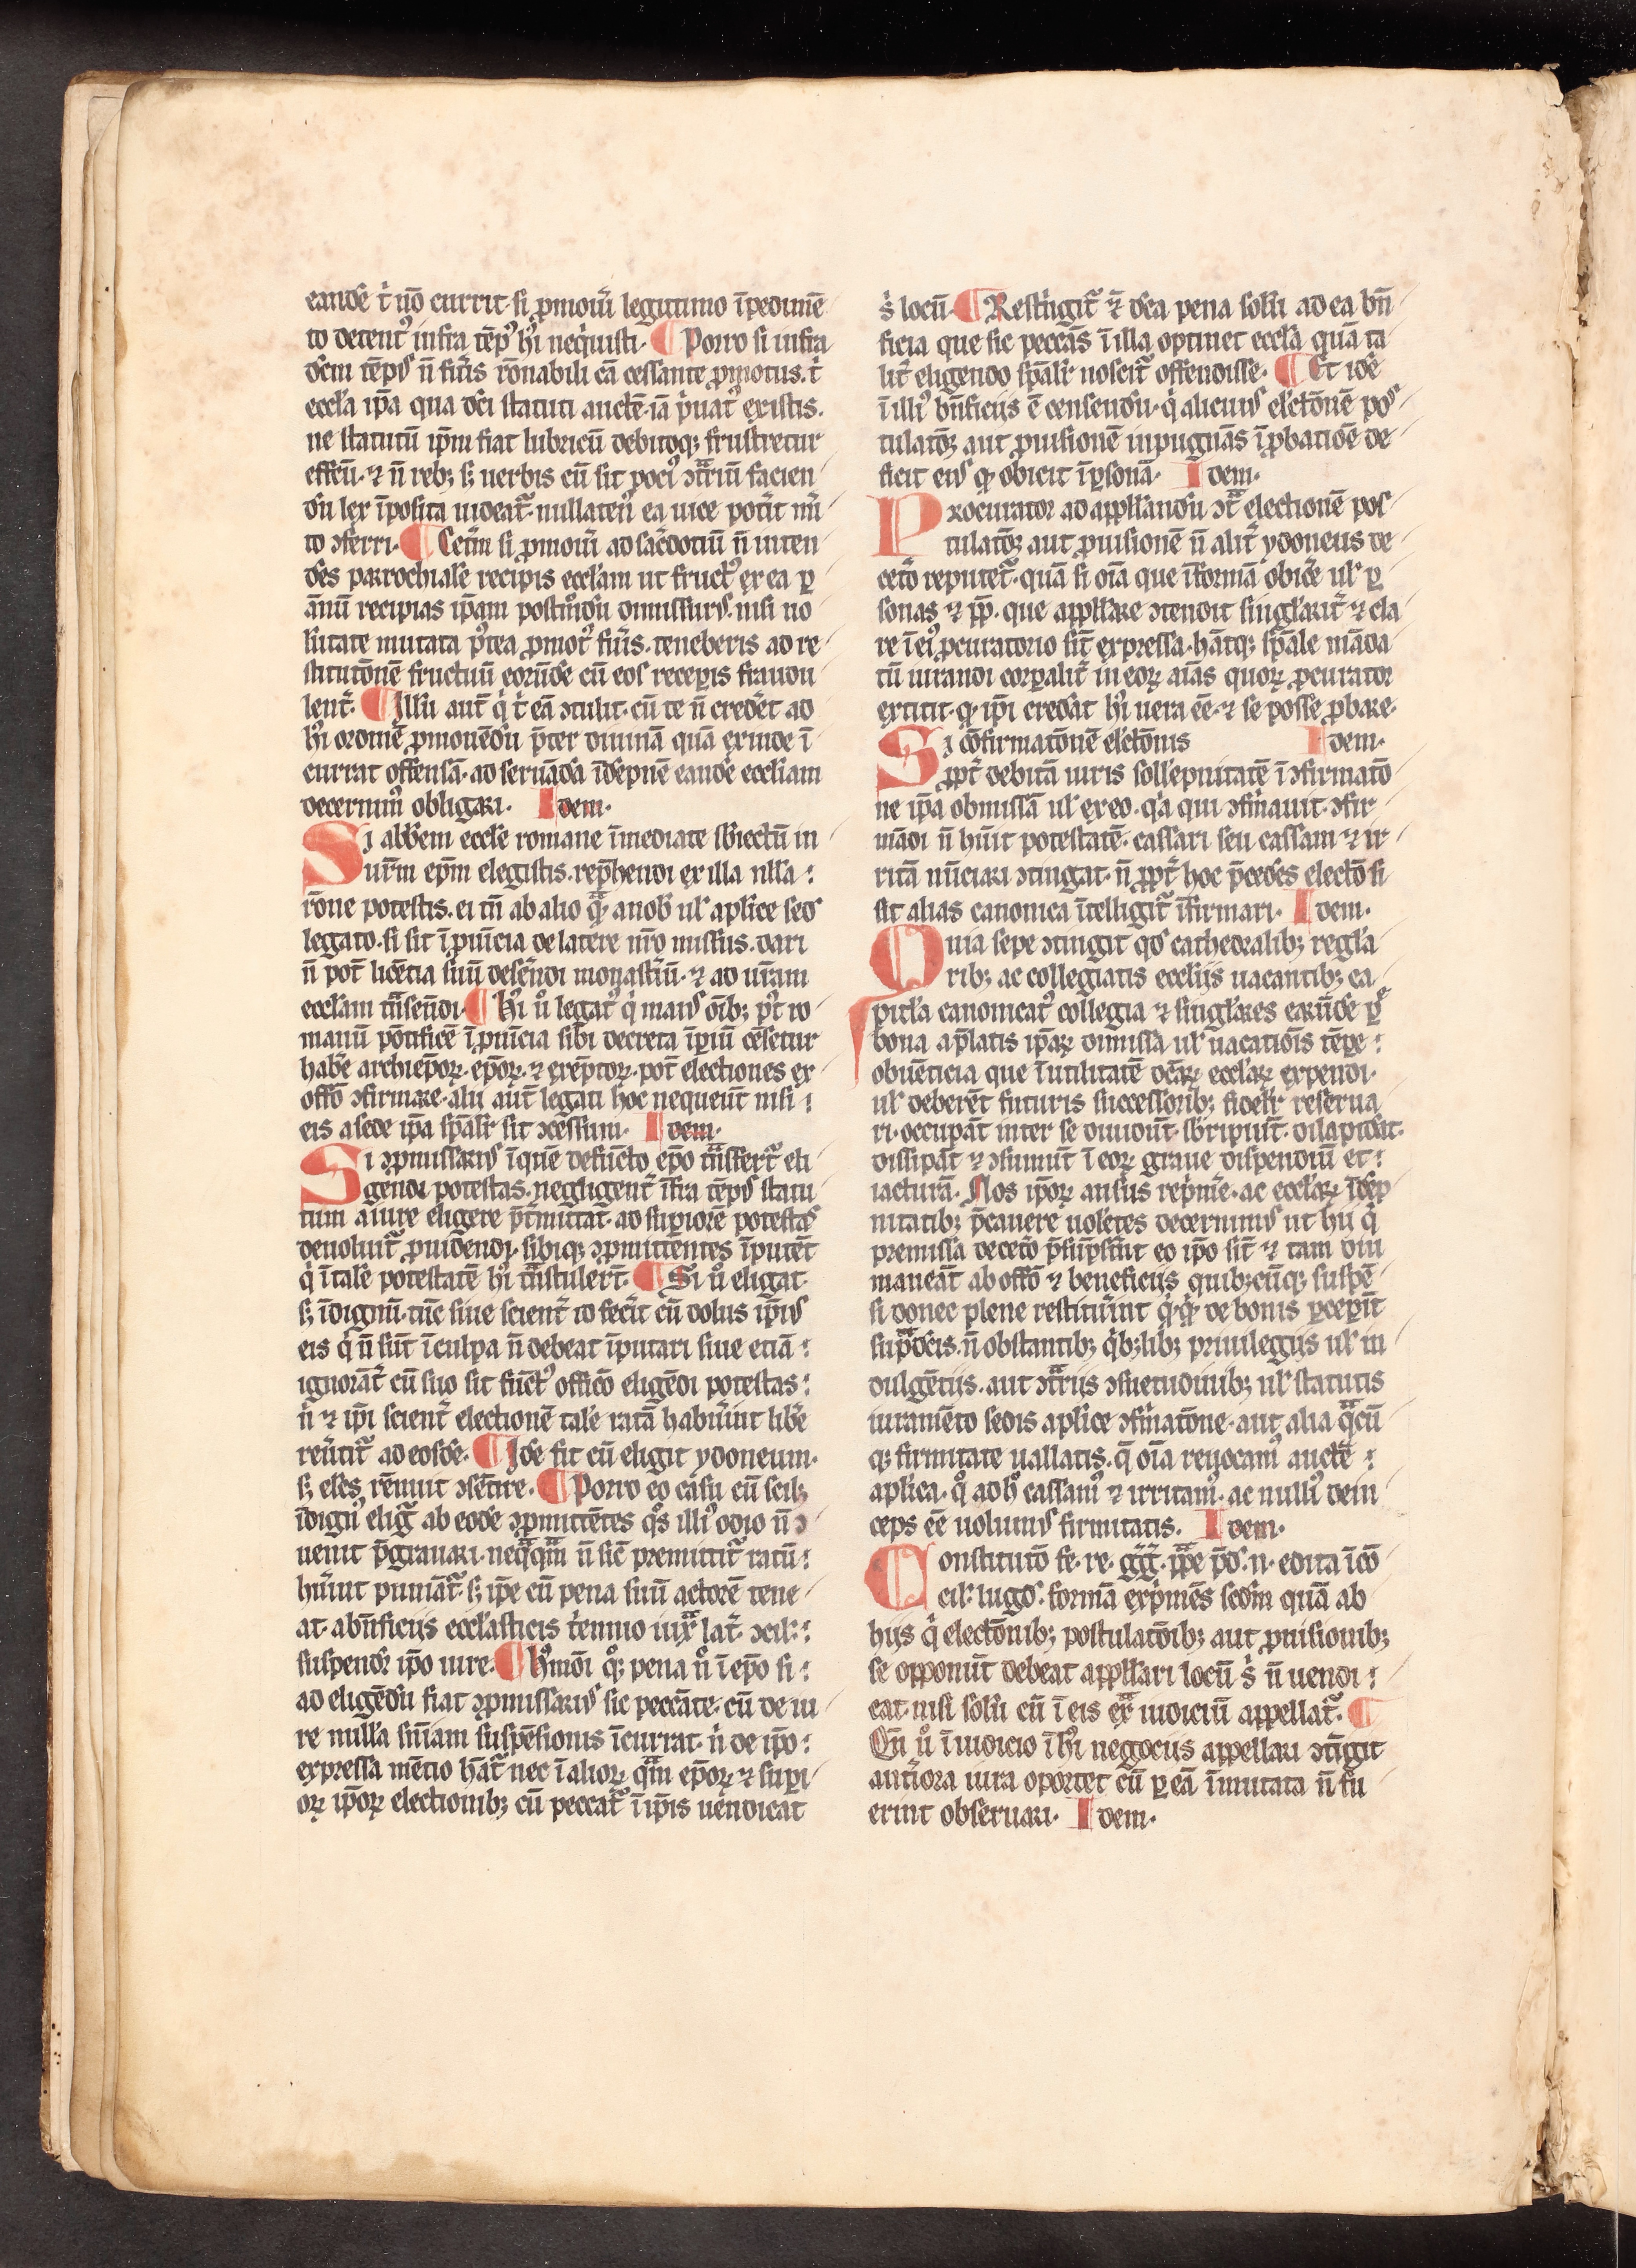 eandē t̄ nō currit. si ꝓmoiũ legittimo īpedimē
to detentꝰ infra tēpꝰ hꝰi neq̇uisti. ¶ Porro si infra
dc̄m tēpꝰ n̄ fueris rōnabili cā cessante ꝓmotus. t̄
ecclīa ip̄a qua dc̄i statuti auctē iā ṗuatꝰ existis.
ne statutū ip̄m fiat lubricū debitoqꝫ frustretur
effcũ. ⁊ n̄ rebꝫ sꝫ uerbis cū sit pociꝰ ꝯtriū facien
dū lex īposita uideat᷑. nullatenꝰ ea uice pot̄it mi̅
to ꝯferri. ¶ Cet̄m si ꝓmoiũ ad sac̄dotiū n̄ inten
dēs parrochialē recipis ecclīam ut fructꝰ ex ea ꝑ
annū recipias ip̄am postmodū dimissurꝰ. nisi uo
lūtate mutata pꝰtea ꝓmotꝰ fueris. teneberis ad re
stitutōnē fructuū eorūdē cū eos receperis fraudu
lent̄. ¶ Illū aut̄ q̇ t̄ eā ꝯtulit. cū te n̄ creder̄et ad
hꝰi ordinē ꝓmouēdū p̄ter diuinā quā exinde ī
currat offensā. ad seruādā īdēpnē eandē eccliam
decernimꝰ obligari. Idem.
Si abb̄em eccl̄e romane īmediate sb̄iectū in
ur̄m ep̄m elegistis. rep̄hendi ex illa ulla
rōne potestis. ei tn̄ ab alio q̄ᷓ a nob̄ ul̄ aplīce sedꝰ
legato. si sit ī ꝓuīcia de latere nr̄o missus. dari
n̄ pot̄ licētia suū deserēdi monast̄iū. ⁊ ad ur̄am
ecclīam trāseūdi. ¶ Hꝰi uͦ legatꝰ q̇ maiꝰ oībꝫ pꝰt ro
manū pōtificē ī ꝓuīcia sibi decreta īꝑiū cēsetur
habē archiep̄oꝝ. ep̄oꝝ. ⁊ exēptoꝝ. pot̄ electiones ex
offō ꝯfirmare. alii aut̄ legati hoc nequeūt nisi
eis a sede ip̄a sp̄alīr sit ꝯcessum. Idem.
Si ꝯpmissariꝰ ī quē defūcto ep̄o trāsfert᷑ eli
gendi potestas. negligent̄ īfra tēpꝰ statu
tum a iure eligere p̄tmittat. ad suꝑiorē potestas
deuoluit᷑ ꝓuidendi. sibiqꝫ ꝯpmittentes īputēt
q̇ ī talē potestatē hꝰi trāstulerūt. ¶ Si uͦ eligat
sꝫ īdignū. tūc siue scient̄ id fec̄it cū dolus ip̄iꝰ
eis q̇ n̄ sūt ī culpa n̄ debeat īputari siue etiā
ignorāt̄ cū suo sit fūctꝰ officō eligēdi potestas
n̄ ⁊ ip̄i scient̄ electionē talē ratā habuīint libē
reūtit᷑ ad eosdē. ¶ Idē fit cū eligit ydoneum.
sꝫ elēs rēnuit ꝯsētire. ¶ Porro eo casu cū scilꝫ
īdignꝰ eligit᷑ ab eodē ꝯpmittētes qͦs illiꝰ odio n̄ ꝯ
uenit p̄grauari. neq̄ᷓq̄ᷓm n̄ sic̄ premittit᷑ ratū
hūīint puniāt᷑. sꝫ ip̄e cū pena suū actorē tene
at. a bn̄ficiis ecclīasticis ṫennio iuxͣ lat̄. ꝯcil̄.
suspendr̄ ip̄o iure. ¶ Hꝰmōi qͦꝫ pena nͦ ī ep̄o si
ad eligēdū fiat ꝯpmissariꝰ sic peccāte. cū de iu
re nullā sn̄iam suspēsionis īcurrat. n̄ de ip̄o
expressa mētio hāt᷑ nec ī alioꝝ q̄ᷓm ep̄oꝝ ⁊ suꝑi
oꝝ ip̄oꝝ electionibꝫ cū peccat᷑ ī ip̄is uendicat
s̄ locū. ¶ Resṫngit᷑ ⁊̄ dc̄a pena solū ad ea bn̄
ficia que sic peccās ī illa optinet eccl̄a quā ta
lit̄ eligendo sp̄alīr noscit᷑ offendisse. ¶ Et idē
ī illiꝰ bn̄ficiis ē censendū. q̇ alicuiꝰ elc̄tōnē pos
tulatōꝫ aut ꝓuisionē inpugnās ī ꝓbatiōe de
ficit eiꝰ qͥ obicit ī ꝑsonā. Idem.
Procurator ad appll̄andū ꝯtͣ electionē pos
tulatōꝫ aut ꝓuisionē n̄ alit̄ ydoneus de
cet̄o reputet᷑. quā si oīa que ī formā obicē ul̄ ꝑ
sonas ⁊ ip̄. que appll̄are ꝯtendit singl̄arit̄ ⁊ cla
re ī eiꝰ ꝓcuratorio sīt expressa. hātqꝫ sp̄ale māda
tū iurandi corꝑalit̄ in eoꝝ aīas quoꝝ ꝓcurator
extitit. qͥ ip̄i credāt hꝰi uera eē. ⁊ se posse ꝓbare.
Si cōfirmatōnē elc̄tōnis Idem.
ꝓpt̄ debitā iuris sollēpnitatē ī ꝯfirmatō
ne ip̄a obmissā ul̄ ex eo. qͥa qui ꝯfirmauit. ꝯfir
mādi n̄ hūit potestatē. cassari seu cassam ⁊ ir
ritā nūciari ꝯtingat. n̄ ꝓpt̄ hoc p̄cedēs electō si
sit alias canonica ītelligit᷑ īfirmari. Idem.
Quia sepe ꝯtingit qd̄ cathedralibꝫ regl̄a
ribꝫ ac collegiatis eccliis uacantibꝫ ca
pitl̄a canonicatꝰ collegia ⁊ singl̄ares earūdē ꝑ
bona a p̄latis ip̄aꝝ dimissa ul̄ uacatiōis tēꝑe
obuēticia que ī utilitatē dc̄aꝝ ecclīaꝝ expendi.
ul̄ deberēt futuris successoribꝫ fidelīr reserua
ri. occupāt inter se diuidūt. sb̄ripiūt. dilapidāt.
dissipāt ⁊ ꝯsumūt ī eoꝝ graue dispendiū et
iacturā. Nos ip̄oꝝ ausus reṗmē. ac ecclīaꝝ īdēp
nitatibꝫ p̄cauere uolētes decernimꝰ ut hii q̇
premissa decet̄o p̄sūpsīint eo ip̄o sīt ⁊ tam diu
maneāt ab offō ⁊ beneficiis quibꝫcūqꝫ suspē
si donec plene restituīint qͥqͥ de bonis ꝑceꝑīt
suprͣdc̄is. n̄ obstantibꝫ q̇bꝫlibꝫ priuilegiis ul̄ in
dulgētiis. aut ꝯtrͣiis ꝯsuetudinibꝫ ul̄ statutis
iuramēto sedis aplīce ꝯfirmatōne. aut alia q̄ᷓcū
qꝫ firmitate uallatis. q̄ oīa reuocamꝰ auctē
aplīca. qͦ ad hͦ cassamꝰ ⁊ irritamꝰ. ac nulliꝰ dein
ceps eē uolumꝰ firmitatis. Idem.
Constitutō fe. re. gg̅. ppͣe p̄d. n. edita ī cō
cil̄. lugd̄. formā exṗmēs scd̄m quā ab
hiis q̇ electōnibꝫ postulatōibꝫ aut ꝓuisionibꝫ
se opponūt debeat appll̄ari locū s̄ n̄ uendi
cat. nisi solū cū ī eis exͣ iudiciū appellat᷑. ¶
Qn̄ uͦ ī iudicio ī hꝰi negociis appellari ꝯtīgit
antīora iura oportet cū ꝑ eā īmutata n̄ fu
erint obseruari. Idem.